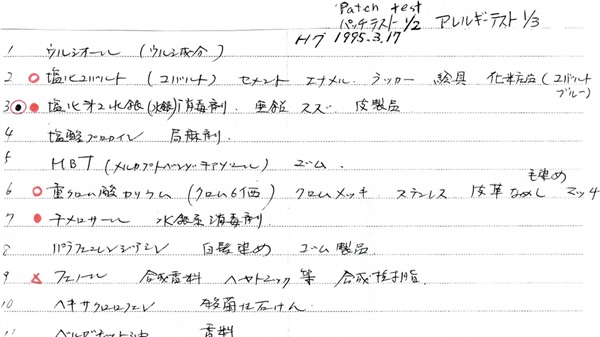 Patch test
パッチテスト 1/2 アレルギーテスト 1/3
HJ 1995.3.17
1 ウルシオール (ウルシ成分)
2 塩化コバルト (コバルト) セメント エナメル ラッカー 絵具 化粧品 (コバルトブルー)
3 塩化第2水銀 (水銀) 消毒剤. 亜鉛 スズ 皮製品
4 塩酸プロカイン 局麻剤.
5 MBT (メルカプトベンゾチアゾール) ゴム.
毛染め
6 重クロム酸カリウム (クロム6価) クロムメッキ. ステンレス 皮革なめし マッチ
7 チメロサール 水銀系消毒剤.
8 パラフェニレンジアミン 白髪染め ゴム製品.
9 フェノール 合成香料 等 合成樹脂.
10 ヘキサクロロフェン 殺菌性石けん.
11 香料